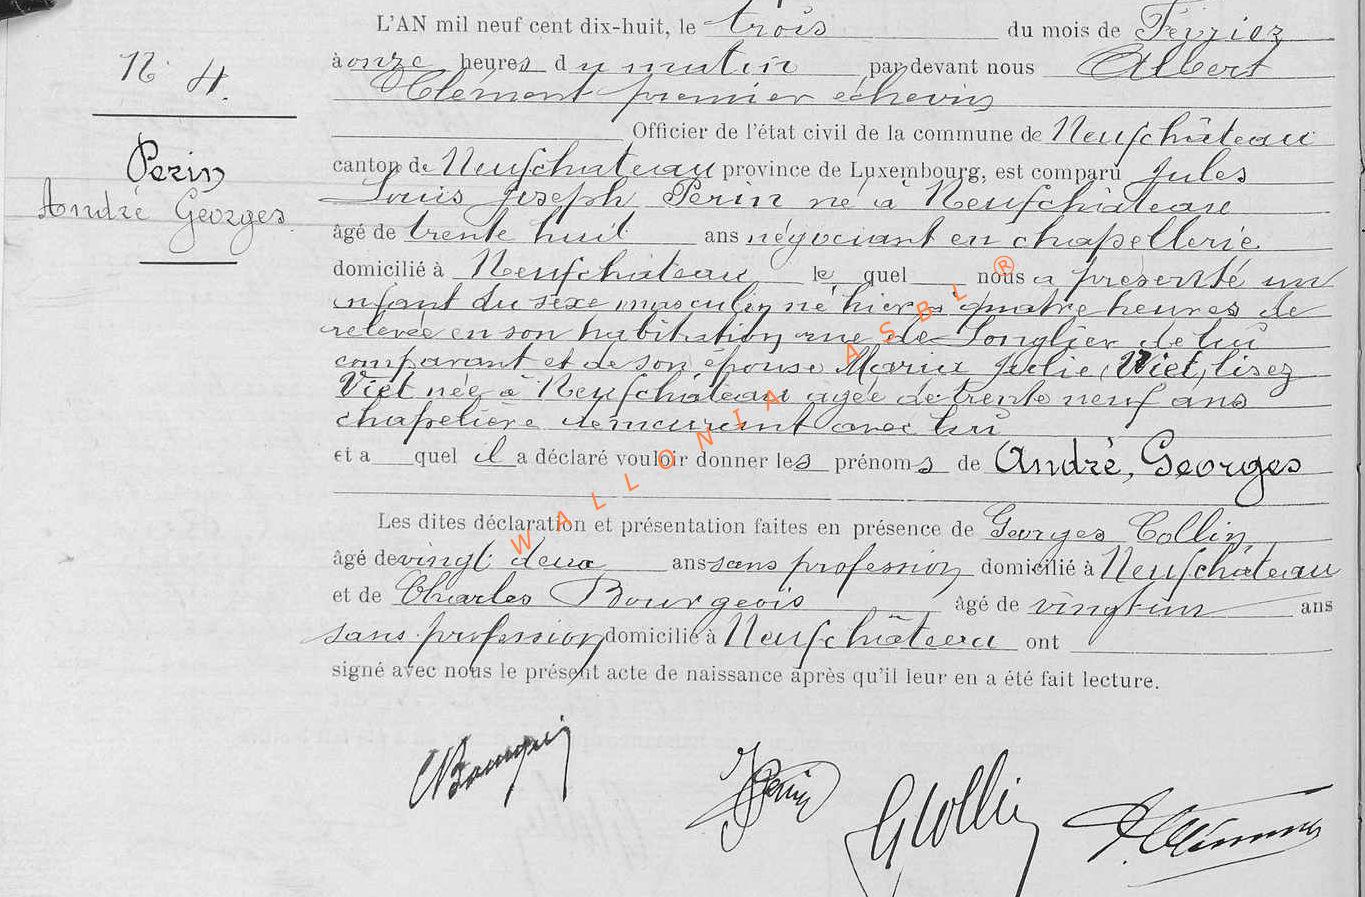 L'AN mil neuf cent dix-huit, le trois du mois de Février
à onze heures du matin par devant nous Albert
Clément premier échevin
Officier de l'état civil de la commune de Neufchâteau
N° 4.
canton de Neufchateau province de Luxembourg, est comparu Jules
Louis Joseph Perin né à Neufchâteau
Perin
André Georges.
âgé de trente huit ans négociant en chapellerie
domicilié à Neufchâteau lequel nous a présenté un
enfant du sexe masculin né hier à quatre heures de
relevée en son habitation rue de Longlier de lui
comparant et de son épouse Maria Julie, Wiet, lisez
Viet née à Neufchâteau agée de trente neuf ans
chapelière demeurant avec lui
et a quel il a déclaré vouloir donner les prénoms de André, Georges
Les dites déclaration et présentation faites en présence de Georges Collin,
âgé de vingt deux ans sans profession domicilié à Neufchâteau
et de Charles Bourgeois âgé de vingt un ans
sans profession domicilié à Neufchâteau ont
signé avec nous le présent acte de naissance après qu'il leur en a été fait lecture.
CBourgeois JPerin GCollin A.Clément
WALLONIA ASBL ®